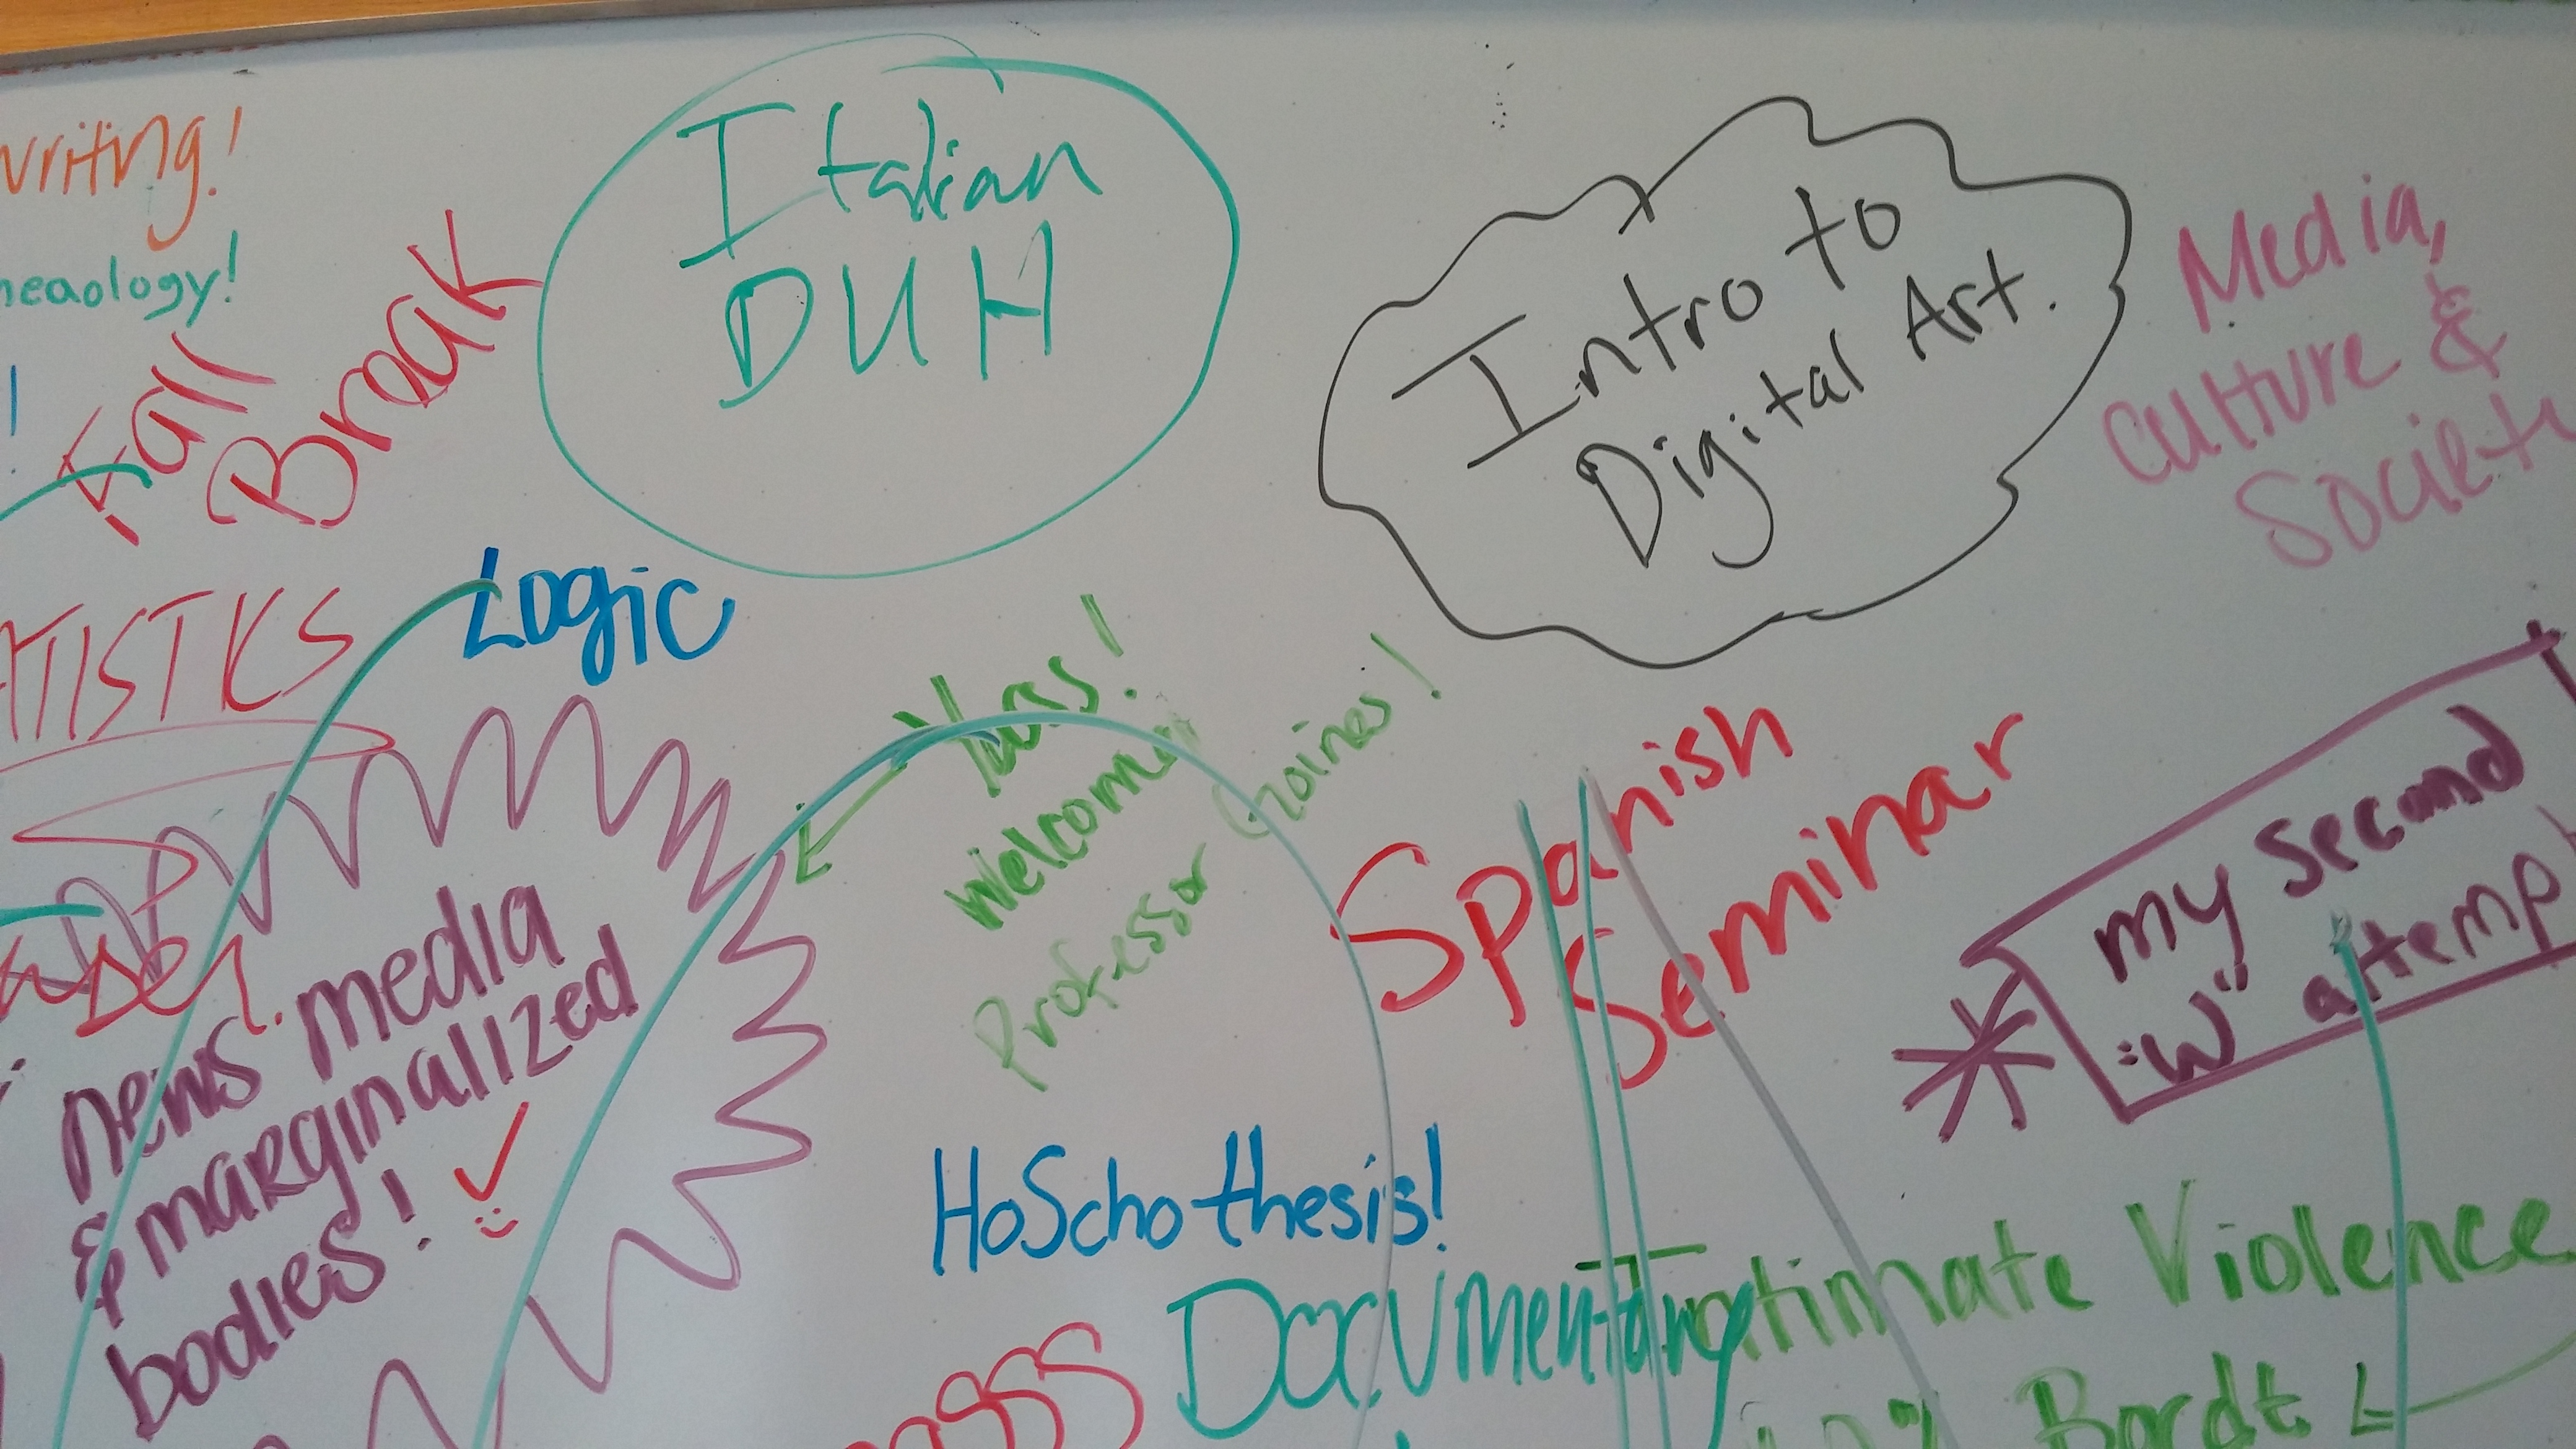 writing!
Fall
Break
Italian
DUH
Intro to
Digital Art.
Media,
Culture &
Society
Logic
Yass!
Welcome
Professor Goines!
Spanish
Seminar
my second
"W" attemp
news media
& marginalized
bodies!
HoScho thesis!
Documentary
Intimate Violence
Bordt